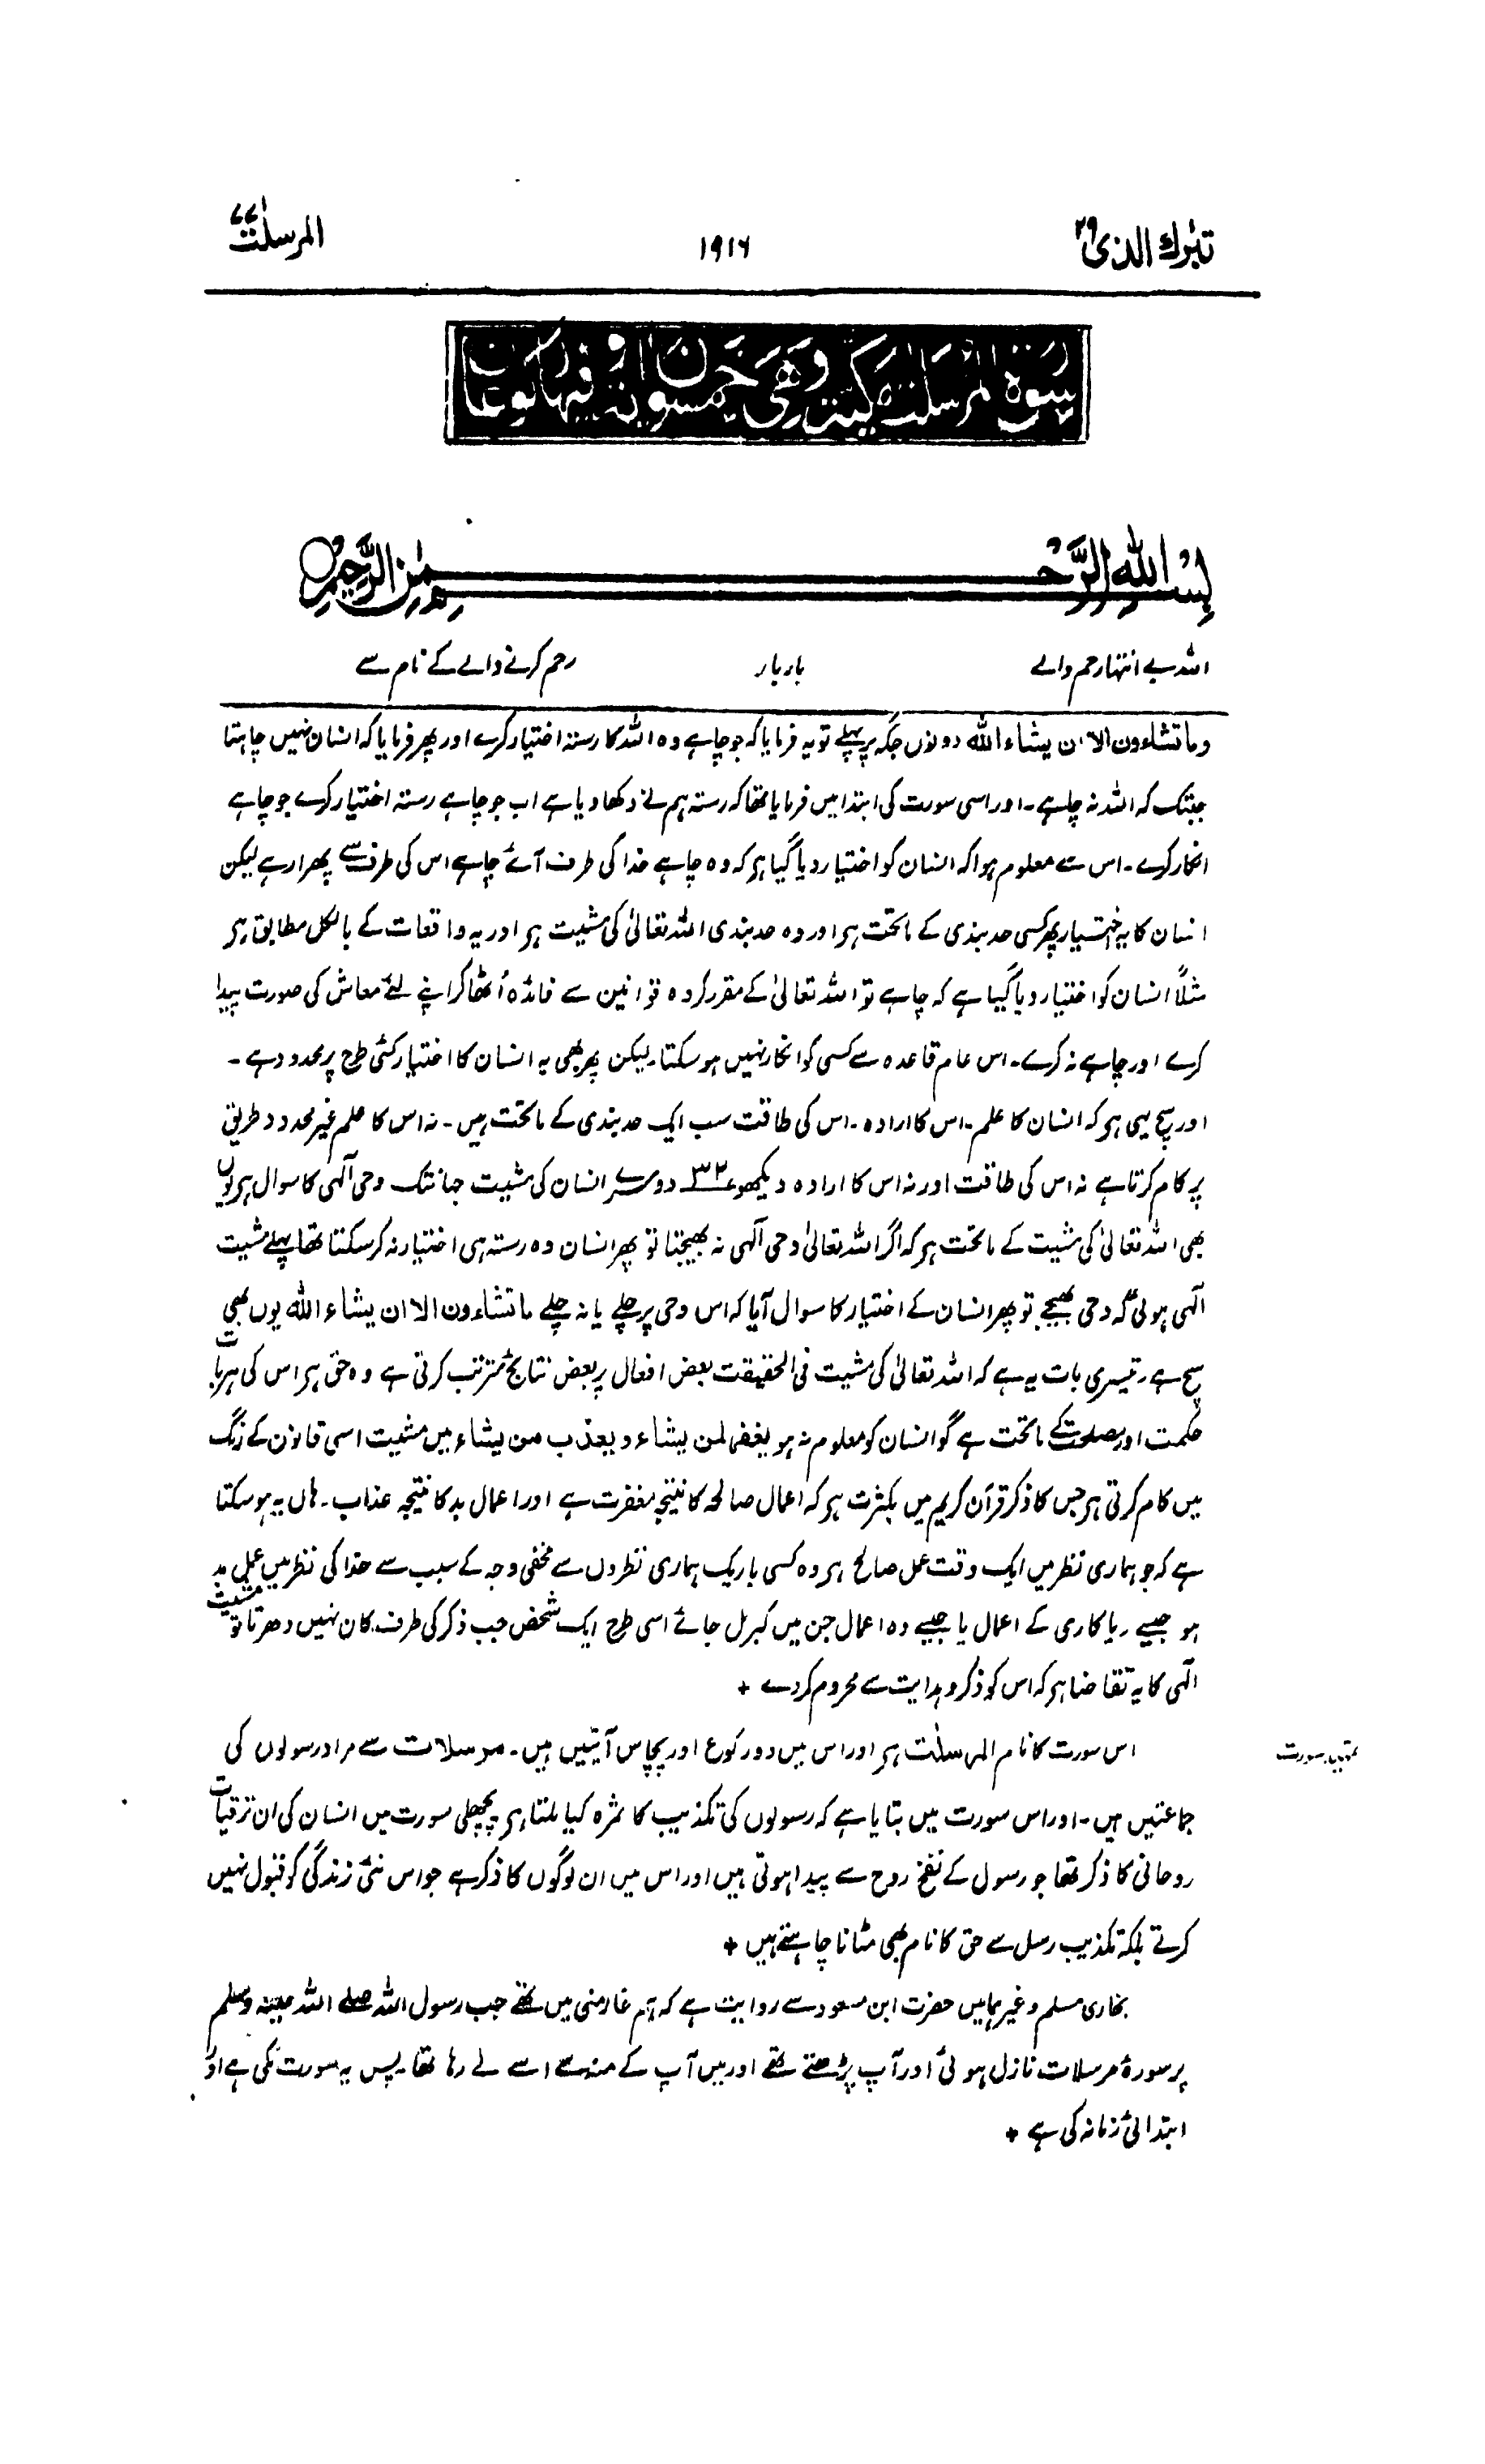 تبٰرك الذی ۲۹
۱۹۱۶
المرسلٰت ۷۷
سورة المرسلٰت مكية وهی خمسون اٰية وفيها ركوعان
بسم الله الرحمٰن الرحيم
اللہ بے انتہا رحم والے بار بار رحم کرنے والے کے نام سے
وما تشاءون الا ان یشاء اللہ دونوں جگہ پر پہلے تو یہ فرمایا کہ جو چاہے وہ اللہ کا رستہ اختیار کرے اور پھر فرمایا کہ انسان نہیں چاہتا
جبتک کہ اللہ نہ چاہے۔ اور اسی سورت کی ابتدا میں فرمایا تھا کہ رستہ ہم نے دکھا دیا ہے اب جو چاہے رستہ اختیار کرے جو چاہے
انکار کرے۔ اس سے معلوم ہوا کہ انسان کو اختیار دیا گیا ہر کہ وہ چاہے خدا کی طرف آئے چاہے اس کی طرف سے پھرا رہے لیکن
انسان کا یہ اختیار پھر کسی حد بندی کے ماتحت ہر اور وہ حد بندی اللہ تعالیٰ کی مشیت ہر اور یہ واقعات کے بالکل مطابق ہر
مثلاً انسان کو اختیار دیا گیا ہے کہ چاہے تو اللہ تعالیٰ کے مقرر کردہ قوانین سے فائدہ اُٹھا کر اپنے لئے معاش کی صورت پیدا
کرے اور چاہے نہ کرے۔ اس عام قاعدہ سے کسی کو انکار نہیں ہو سکتا۔ لیکن پھر بھی یہ انسان کا اختیار کئی طرح پر محدود ہے۔
اور سچ یہی ہر کہ انسان کا علم۔ اس کا ارادہ۔ اس کی طاقت سب ایک حد بندی کے ماتحت ہیں۔ نہ اس کا علم غیر محدود طریق
پر کام کرتا ہے نہ اس کی طاقت اور نہ اس کا ارادہ دیکھو ۳۲ دوسرے انسان کی مشیت جہانتک وحی الٰہی کا سوال ہر یوں
بھی اللہ تعالیٰ کی مشیت کے ماتحت ہر کہ اگر اللہ تعالیٰ وحی الٰہی نہ بھیجتا تو پھر انسان وہ رستہ ہی اختیار نہ کر سکتا تھا پہلے مشیت
الٰہی ہوئی کہ وحی بھیجے تو پھر انسان کے اختیار کا سوال آیا کہ اس وحی پر چلے یا نہ چلے ما تشاءون الا ان یشاء اللہ یوں بھی
سچ ہے۔ تیسری بات یہ ہے کہ اللہ تعالیٰ کی مشیت فی الحقیقت بعض افعال پر بعض نتائج مترتب کرتی ہے وہ حق ہر اس کی ہر بات
حکمت اور مصلحت کے ماتحت ہے گو انسان کو معلوم نہ ہو یغفر لمن یشاء و یعذب من یشاء میں مشیت اسی قانون کے رنگ
میں کام کرتی ہر جس کا ذکر قرآن کریم میں بکثرت ہر کہ اعمال صالحہ کا نتیجہ مغفرت ہے اور اعمال بد کا نتیجہ عذاب۔ ہاں یہ ہو سکتا
ہے کہ جو ہماری نظر میں ایک وقت عمل صالح ہر وہ کسی باریک ہماری نظروں سے مخفی وجہ کے سبب سے خدا کی نظر میں عمل بد
ہو جیسے ریاکاری کے اعمال یا جیسے وہ اعمال جن میں کبر مل جائے اسی طرح ایک شخص جب ذکر کی طرف کان نہیں دھرتا تو مشیت
الٰہی کا یہ تقاضا ہر کہ اس کو ذکر و ہدایت سے محروم کر دے +
تمہید سورت
اس سورت کا نام المرسلٰت ہر اور اس میں دو رکوع اور پچاس آیتیں ہیں۔ مرسلات سے مراد رسولوں کی
جماعتیں ہیں۔ اور اس سورت میں بتایا ہے کہ رسولوں کی تکذیب کا ثمرہ کیا ملتا ہر پچھلی سورت میں انسان کی ان ترقیات
روحانی کا ذکر تھا جو رسول کے نفخ روح سے پیدا ہوتی ہیں اور اس میں ان لوگوں کا ذکر ہے جو اس نئی زندگی کو قبول نہیں
کرتے بلکہ تکذیب رسل سے حق کا نام بھی مٹانا چاہتے ہیں +
بخاری مسلم وغیرہما میں حضرت ابن مسعود سے روایت ہے کہ ہم غار منی میں تھے جب رسول اللہ صلے اللہ علیہ وسلم
پر سورۂ مرسلات نازل ہوئی اور آپ پڑھتے تھے اور میں آپ کے منہ سے اسے لے رہا تھا۔ پس یہ سورت مکی ہے اور
ابتدائی زمانہ کی ہے +